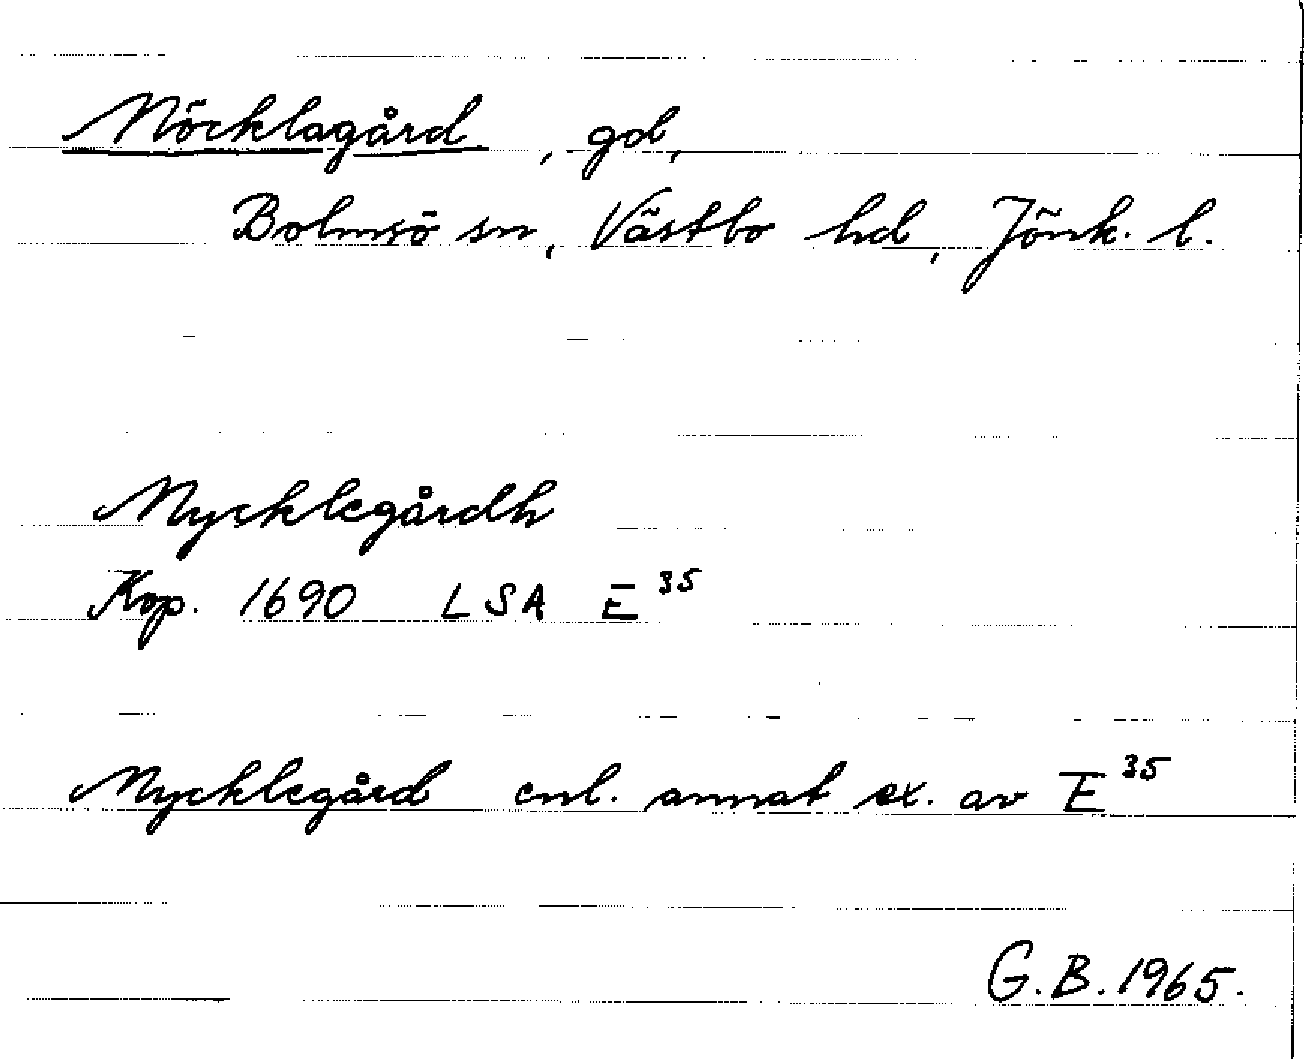 Nöcklagård, gd,
Bolmsö sn, Västbo hd, Jönk. l.
Nycklegårdh
Kop. 1690 LSA E³⁵
Nycklegård enl. annat ex. av E³⁵
G.B. 1965.